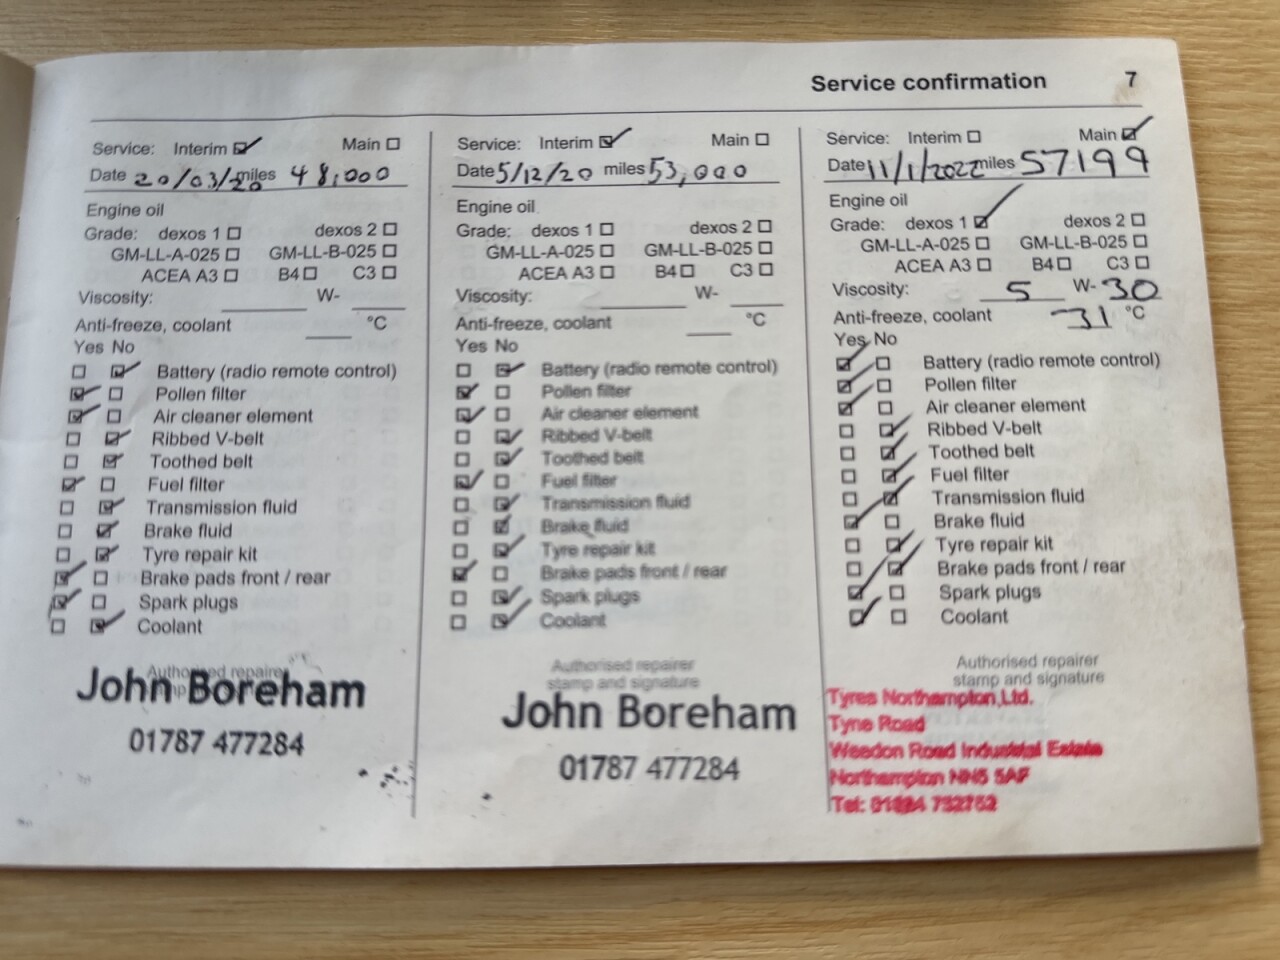 Service confirmation 7
Service: Interim ☑ Main ☐
Date 20/03/20 miles 48,000
Engine oil
Grade: dexos 1 ☐ dexos 2 ☐
GM-LL-A-025 ☐ GM-LL-B-025 ☐
ACEA A3 ☐ B4 ☐ C3 ☐
Viscosity: ____ W- ____
Anti-freeze, coolant ____ °C
Yes No
☐ ☑ Battery (radio remote control)
☑ ☐ Pollen filter
☑ ☐ Air cleaner element
☐ ☑ Ribbed V-belt
☐ ☑ Toothed belt
☑ ☐ Fuel filter
☐ ☑ Transmission fluid
☐ ☑ Brake fluid
☐ ☑ Tyre repair kit
☑ ☐ Brake pads front / rear
☑ ☐ Spark plugs
☐ ☑ Coolant
Authorised repairer
John Boreham
01787 477284
Service: Interim ☑ Main ☐
Date 5/12/20 miles 53,000
Engine oil
Grade: dexos 1 ☐ dexos 2 ☐
GM-LL-A-025 ☐ GM-LL-B-025 ☐
ACEA A3 ☐ B4 ☐ C3 ☐
Viscosity: ____ W- ____
Anti-freeze, coolant ____ °C
Yes No
☐ ☑ Battery (radio remote control)
☑ ☐ Pollen filter
☑ ☐ Air cleaner element
☐ ☑ Ribbed V-belt
☐ ☑ Toothed belt
☑ ☐ Fuel filter
☐ ☑ Transmission fluid
☐ ☑ Brake fluid
☐ ☑ Tyre repair kit
☑ ☐ Brake pads front / rear
☐ ☑ Spark plugs
☐ ☑ Coolant
Authorised repairer
stamp and signature
John Boreham
01787 477284
Service: Interim ☐ Main ☑
Date 11/1/2022 miles 57199
Engine oil
Grade: dexos 1 ☑ dexos 2 ☐
GM-LL-A-025 ☐ GM-LL-B-025 ☐
ACEA A3 ☐ B4 ☐ C3 ☐
Viscosity: 5 W- 30
Anti-freeze, coolant -31 °C
Yes No
☑ ☐ Battery (radio remote control)
☑ ☐ Pollen filter
☑ ☐ Air cleaner element
☐ ☑ Ribbed V-belt
☐ ☑ Toothed belt
☐ ☑ Fuel filter
☐ ☑ Transmission fluid
☑ ☐ Brake fluid
☐ ☑ Tyre repair kit
☐ ☑ Brake pads front / rear
☑ ☐ Spark plugs
☑ ☐ Coolant
Authorised repairer
stamp and signature
Tyres Northampton Ltd.
Tyne Road
Weedon Road Industrial Estate
Northampton NN5 5AF
Tel: